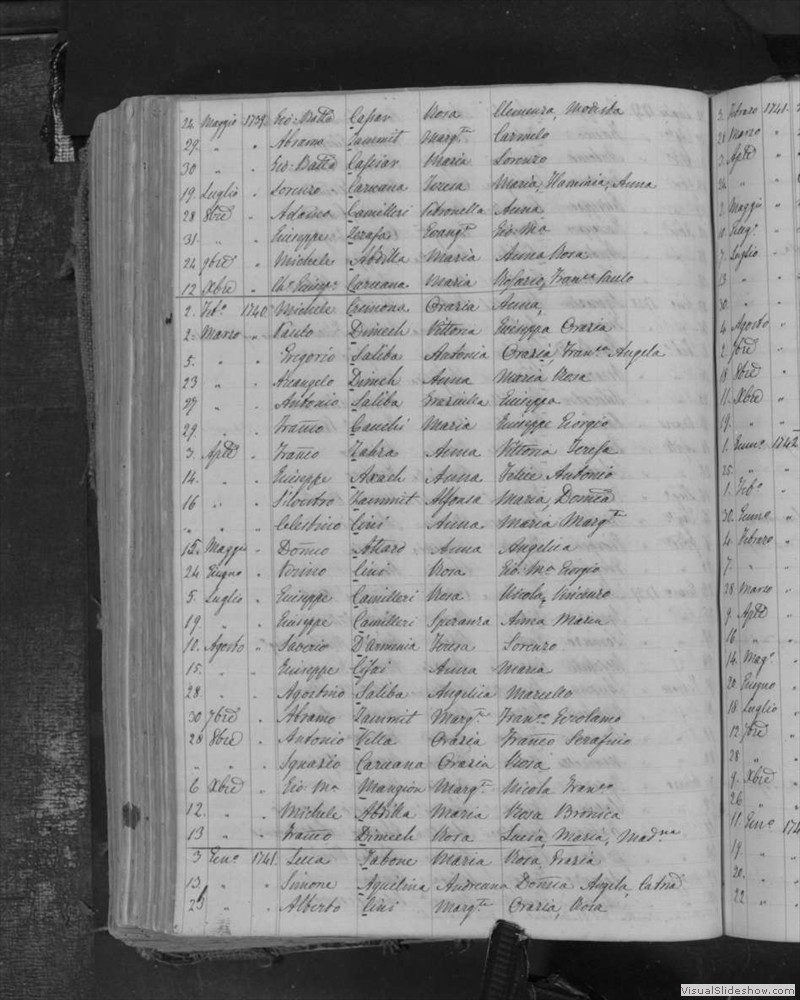 24 Maggio 1739 Gio: Batta Caspar Rosa Clemenza, Modesta
29 " " Abramo Zammit Marg.ta Carmelo
30 " " Gio: Batta Cassiar Maria Lorenzo
19 Luglio " Lorenzo Caruana Teresa Maria, Flaminia, Anna
28 8bre " Adaino Camilleri Petronella Anna
31 " " Giuseppe Zerafa Evang.ta Gio: Ma
24 9bre " Michele Abdilla Maria Anna Rosa
12 Xbre " Ch.o Giusep.e Caruana Maria Rosario, Fran.co Paulo
2 Feb.o 1740 Michele Cremona Grazia Anna,
2 Marzo " Paulo Dimech Vittoria Giuseppa Grazia
5 " " Grigorio Saliba Antonia Grazia, Fran.ca Angela
23 " " Arcangelo Dimech Anna Maria Rosa
27 " " Antonio Saliba Graziulla Giuseppa
29 " " Franco Gauchi Maria Giuseppe Giorgio
3 Aple " Franco Zahra Anna Vittoria Teresa
14 " " Giuseppe Axiach Anna Felice Antonio
16 " " Silvestro Zammit Alfonsa Maria, Domca
" " " Celestino Cini Anna Maria Marg.ta
15 Maggio " Domco Attard Anna Angelica
24 Giugno " Cini Rosa Gio: Ma Giorgio
5 Luglio " Giuseppe Camilleri Rosa Nicola, Vincenzo
19 " " Giuseppe Camilleri Speranza Anna Maria
10 Agosto " Saverio D'Armenia Teresa Lorenzo
15 " " Giuseppe Anna Maria
28 " " Agostino Saliba Angelica Marcello
30 7bre " Abramo Zammit Marg.ta Fran.co Girolamo
28 8bre " Antonio Vella Grazia Franco Serafino
" " " Ignazio Caruana Grazia Rosa
6 Xbre " Gio: Ma Mangion Marg.ta Nicola Fran.co
12 " " Michele Abdilla Maria Rosa Bronica
13 " " Franco Dimech Rosa Lucia, Maria, Mad.na
3 Gen.o 1741 Luca Tabone Maria Rosa, Grazia
13 " " Simone Aquilina Andreana Domca Angela, Catna
23 " " Alberto Cini Marg.ta Grazia, Rosa
3 Febraro 1741
28 Marzo "
3 Aple
24 "
2 Maggio "
10 Giug.o "
7 Luglio "
13 "
30 "
4 Agosto "
2 7bre "
18 8bre "
11 Xbre "
19 "
1 Genn.o 1742
25 "
1 Feb.o "
30 Genno "
4 Febraro "
7 "
28 Marzo "
9 Aple "
16 "
14 Mag.o "
20 Giugno "
18 Luglio "
12 7bre "
28 "
9 Xbre "
26 "
11 Gen.o
19 "
20 "
22 "
VisualSlideshow.com